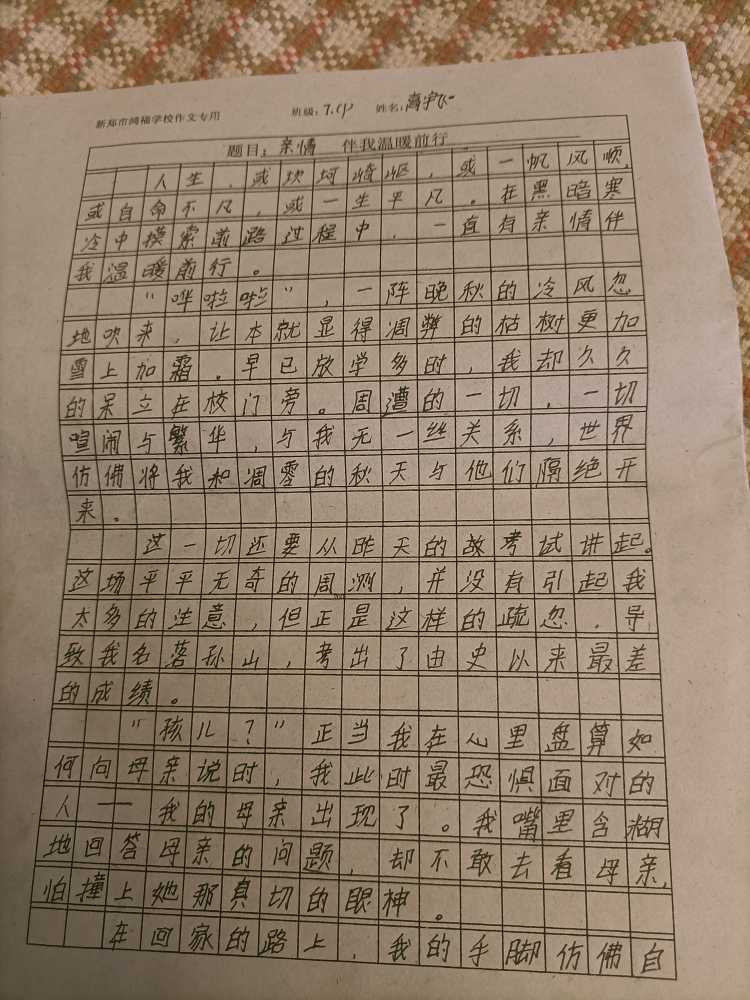 新郑市鸿福学校作文专用 班级:7.(1) 姓名:高宇
题目:亲情 伴我温暖前行
人生,或坎坷崎岖,或一帆风顺,
或自命不凡,或一生平凡。在黑暗寒
冷中摸索前路过程中,一直有亲情伴
我温暖前行。
“哗啦啦”,一阵晚秋的冷风忽
地吹来,让本就显得凋弊的枯树更加
雪上加霜。早已放学多时,我却久久
的呆立在校门旁。周遭的一切,一切
喧闹与繁华,与我无一丝关系,世界
仿佛将我和凋零的秋天与他们隔绝开
来。
这一切还要从昨天的故考试讲起。
这场平平无奇的周测,并没有引起我
太多的注意,但正是这样的疏忽,导
致我名落孙山,考出了由史以来最差
的成绩。
“孩儿?”正当我在心里盘算如
何向母亲说时,我此时最恐惧面对的
人——我的母亲出现了。我嘴里含糊
地回答母亲的问题,却不敢去看母亲,
怕撞上她那真切的眼神。
在回家的路上,我的手脚仿佛自